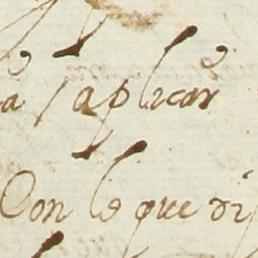 a aplicar
Con lo que di